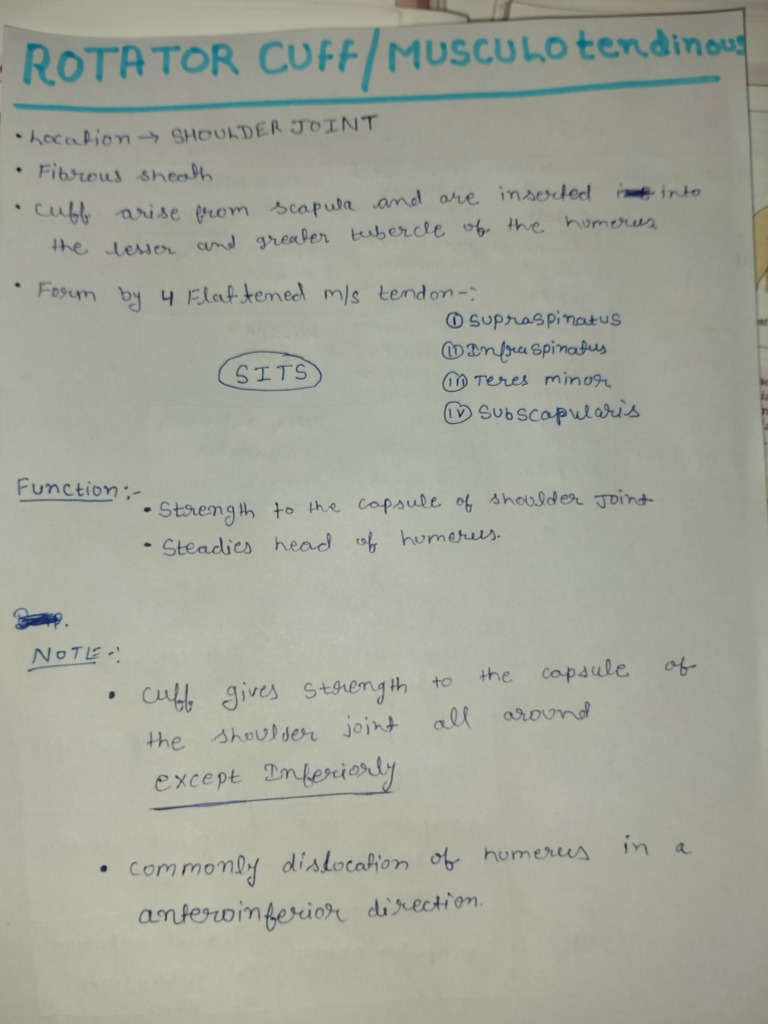 ROTATOR CUFF/MUSCULOtendinous
• Location → SHOULDER JOINT
• Fibrous sheath
• Cuff arise from scapula and are inserted into
the lesser and greater tubercle of the humerus.
• Form by 4 Flattened m/s tendon-:
① Supraspinatus
ⓘⓘ Infraspinatus
SITS
ⓘⓘⓘ Teres minor
ⓘⓥ Subscapularis
Function:-
• Strength to the capsule of shoulder Joint
• Steadies head of humerus.
NOTE-:
• Cuff gives strength to the capsule of
the shoulder joint all around
except Inferiorly
• commonly dislocation of humerus in a
anteroinferior direction.